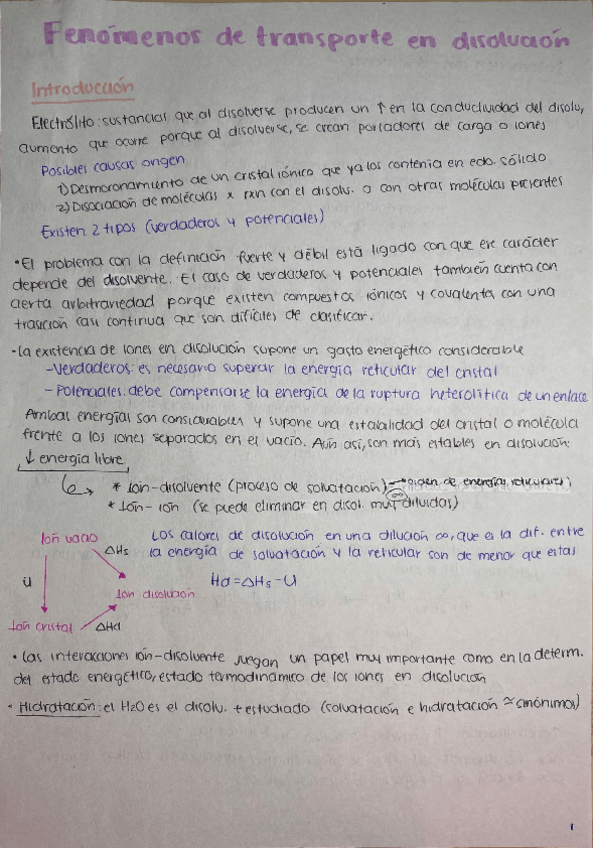 Fenómenos de transporte en disolución
Introducción
Electrólito: sustancias que al disolverse producen un ↑ en la conductividad del disolu,
aumento que ocurre porque al disolverse, se crean portadores de carga o iones
Posibles causas origen
1) Desmoronamiento de un cristal iónico que ya los contenía en edo. sólido
2) Disociación de moléculas x rxn con el disolu. o con otras moléculas presentes
Existen 2 tipos (verdaderos y potenciales)
• El problema con la definición fuerte y débil está ligado con que ere carácter
depende del disolvente. El caso de verdaderos y potenciales también cuenta con
cierta arbitrariedad porque existen compuestos iónicos y covalentes con una
trasición casi continua que son difíciles de clasificar.
• La existencia de iones en disolución supone un gasto energético considerable
- Verdaderos: es necesario superar la energía reticular del cristal
- Potenciales: debe compensarse la energía de la ruptura heterolítica de un enlace
Ambas energías son considerables y supone una estabilidad del cristal o molécula
frente a los iones separados en el vacío. Aún así, son más estables en disolución:
↓ energía libre
* Ión-disolvente (proceso de solvatación) → orden de energías reticulares
* Ión-ión (se puede eliminar en disol. muy diluidas)
Ión vacío
ΔHs
U
Ión disolución
Ión cristal
ΔHd
Los calores de disolución en una dilución ∞, que es la dif. entre
la energía de solvatación y la reticular son de menor que estas
Hd = ΔHs - U
• Las interacciones ión-disolvente juegan un papel muy importante como en la determ.
del estado energético, estado termodinámico de los iones en disolución
• Hidratación: el H2O es el disolu. + estudiado (solvatación e hidratación ≈ sinónimos)
1